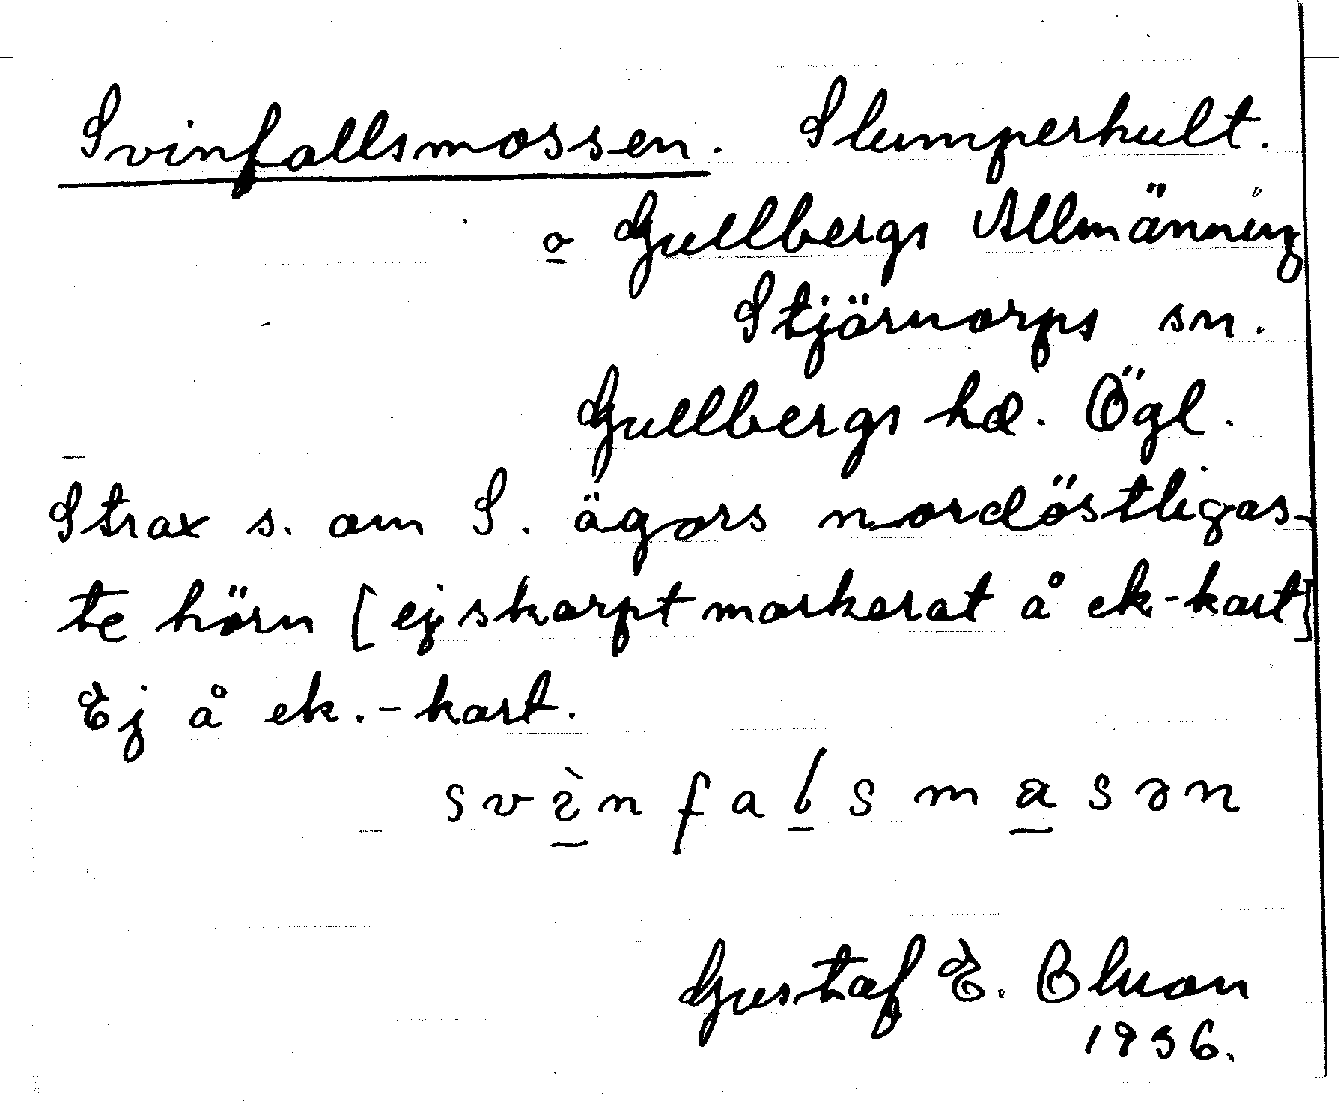 Svinfallsmossen. Slumperhult.
o Gullbergs Allmänning
Stjärnorps sn.
Gullbergs hd. Ögl.
Strax s. om S. ägors nordöstligas-
te hörn [ej skarpt markerat å ek-kart]
Ej å ek.-kart.
svὲnfalsmasən
Gustaf E. Oluan
1936.